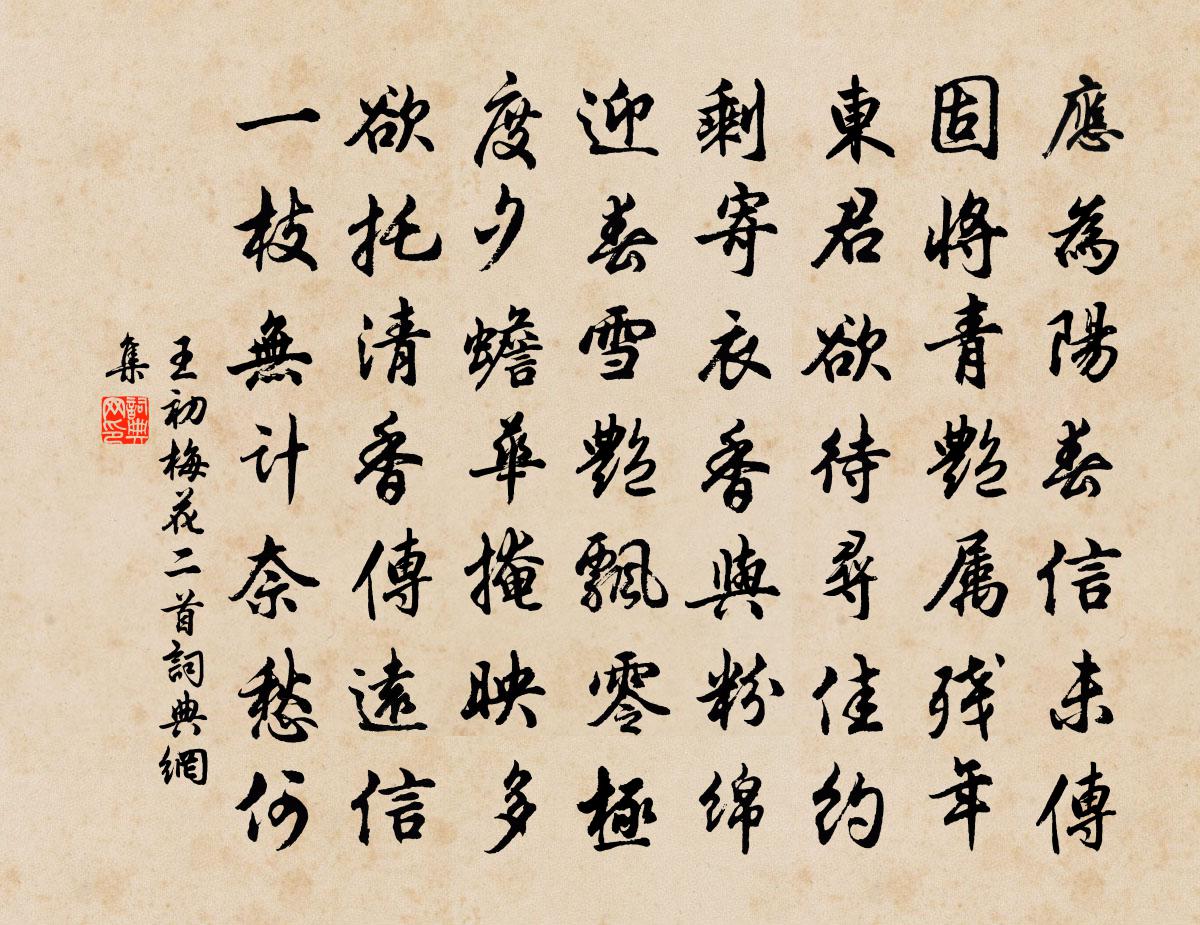 應為陽春信未傳
固將青艷属残年
東君欲待尋佳約
剩寄衣香與粉綿
迎春雪艷飄零極
度夕蟾華掩映多
欲托清香傳遠信
一枝無計奈愁何
王初梅花二首詞典網
集
詞典
网印